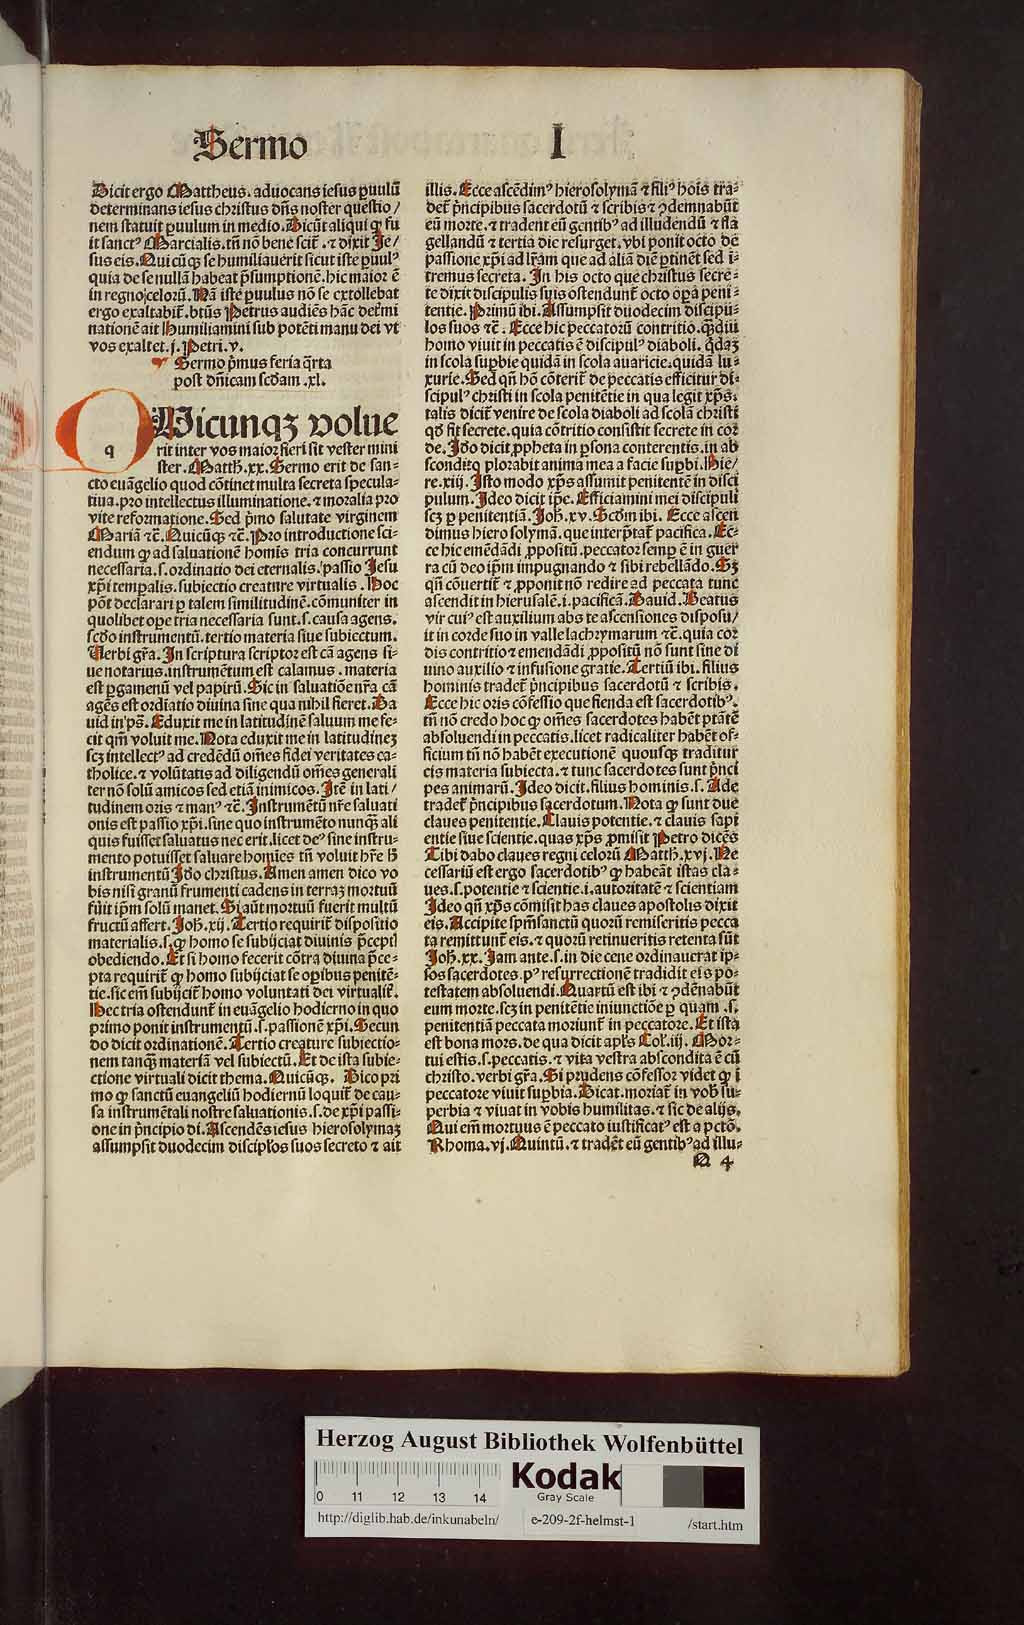 Sermo I
Dicit ergo Mattheus. aduocans iesus puulū
determinans iesus christus dn̄s noster questio/
nem statuit puulum in medio. Dicūt aliqui ꝙ fu
it sanctꝰ Marcialis. tn̄ nō bene scit̄. ⁊ dixit Je/
sus eis. Quicūꝙ se humiliauerit sicut iste puulꝰ
quia de se nullā habeat p̄sumptionē. hic maior ē
in regno celorū. Nā iste puulus nō se extollebat
ergo exaltabit̄. btūs Petrus audiēs hāc det̄mi
nationē ait Humiliamini sub potēti manu dei vt
vos exaltet. j. Petri. v.
Sermo p̄mus feria q̄rta
post dn̄icam scd̄am .xl.
q Uicunqꝫ volue
rit inter vos maior fieri sit vester mini
ster. Matth̄. xx. Sermo erit de san⸗
cto euāgelio quod cōtinet multa secreta specula⸗
tiua. pro intellectus illuminatione. ⁊ moralia pro
vite reformatione. Sed p̄mo salutate virginem
Mariā ⁊c̄. Quicūꝙ ⁊c̄. Pro introductione sci⸗
endum ꝙ ad saluationē homīs tria concurrunt
necessaria. s. ordinatio dei eternalis. passio Jesu
xp̄i temꝑalis. subiectio creature virtualis. Hoc
pōt declarari ꝑ talem similitudinē. cōmuniter in
quolibet oꝑe tria necessaria sunt. s. causa agens.
scd̄o instrumentū. tertio materia siue subiectum.
Verbi gr̄a. In scriptura scriptor est cā agens si⸗
ue notarius. instrumētum est calamus. materia
est ꝑgamenū vel papirū. Sic in saluatiōe nr̄a cā
agēs est ordiatio diuina sine qua nihil fieret. Da
uid in ps̄. Eduxit me in latitudinē saluum me fe⸗
cit qm̄ voluit me. Nota eduxit me in latitudineꝫ
scꝫ intellectꝰ ad credēdū om̄es fidei veritates ca⸗
tholice. ⁊ volūtatis ad diligendū om̄es generali
ter nō solū amicos sed etiā inimicos. Itē in lati/
tudinem oris ⁊ manꝰ ⁊c̄. Instrumētū nr̄e saluati
onis est passio xp̄i. sine quo instrumēto nunꝙ ali
quis fuisset saluatus nec erit. licet deꝰ sine instru⸗
mento potuisset saluare homīes tn̄ voluit hr̄e h̄
instrumentū Jd̄o christus. Amen amen dico vo
bis nisi granū frumenti cadens in terraꝫ mortuū
fūit ip̄m solū manet. Si aūt mortuū fuerit multū
fructū affert. Joh̄. xij. Tertio requirit̄ dispositio
materialis. s. ꝙ homo se subijciat diuinis p̄cept̄
obediendo. Et si homo fecerit cōtra diuina p̄ce⸗
pta requirit̄ ꝙ homo subijciat se oꝑibus penitē⸗
tie. sic em̄ subijcit̄ homo voluntati dei virtualit̄.
Hec tria ostendunt̄ in euāgelio hodierno in quo
primo ponit instrumentū. s. passionē xp̄i. Secun
do dicit ordinationē. Tertio creature subiectio⸗
nem tanꝙ materiā vel subiectū. Et de ista subie⸗
ctione virtuali dicit thema. Quicūꝙ. Dico pri
mo ꝙ sanctū euangeliū hodiernū loquit̄ de cau⸗
sa instrumētali nostre saluationis. s. de xp̄i passi⸗
one in p̄ncipio di. Ascendēs iesus hierosolymaꝫ
assumpsit duodecim discipl̄os suos secreto ⁊ ait
illis. Ecce ascēdimꝰ hierosolymā ⁊ filiꝰ hoīs tra⸗
det̄ p̄ncipibus sacerdotū ⁊ scribis ⁊ ꝯdemnabūt
eū morte. ⁊ tradent eū gentibꝰ ad illudendū ⁊ fla
gellandū ⁊ tertia die resurget. vbi ponit octo de
passione xp̄i ad lr̄am que ad aliā diē ꝑtinēt sed ī⸗
tremus secreta. In his octo que christus secre⸗
te dixit discipulis suis ostendunt̄ octo oꝑa peni⸗
tentie. Primū ibi. Assumpsit duodecim discipu⸗
los suos ⁊c̄. Ecce hic peccatorū contritio. ꝙdiu
homo viuit in peccatis ē discipulꝰ diaboli. qd̄aꝫ
in scola suꝑbie quidā in scola auaricie. quidā lu⸗
xurie. Sed qn̄ hō cōterit̄ de peccatis efficitur di⸗
scipulꝰ christi in scola penitētie in qua legit xp̄s.
talis dicit̄ venire de scola diaboli ad scolā christi
qd̄ fit secrete. quia cōtritio consistit secrete in cor
de. Jd̄o dicit ꝓpheta in ꝑsona conterentis. in ab
scondito plorabit anima mea a facie suꝑbi. Hie/
re. xiij. Isto modo xp̄s assumit penitentē in disci
pulum. Ideo dicit ip̄e. Efficiamini mei discipuli
scꝫ ꝑ penitentiā. Joh̄. xv. Scd̄m ibi. Ecce ascen
dimus hiero solymā. que interp̄tat̄ pacifica. Ec⸗
ce hic emēdādi ꝓpositū. peccator semꝑ ē in guer
ra cū deo ip̄m impugnando ⁊ sibi rebellādo. Sꝫ
qn̄ cōuertit̄ ⁊ ꝓponit nō redire ad peccata tunc
ascendit in hierusalē. i. pacificā. Dauid. Beatus
vir cuiꝰ est auxilium abs te ascensiones disposu/
it in corde suo in valle lachrymarum ⁊c̄. quia cor
dis contritio ⁊ emendādi ꝓpositū nō sunt sine di
uino auxilio ⁊ infusione gratie. Tertiū ibi. filius
hominis tradet̄ p̄ncipibus sacerdotū ⁊ scribis.
Ecce hic oris cōfessio que fienda est sacerdotibꝰ.
tn̄ nō credo hoc ꝙ om̄es sacerdotes habēt ptātē
absoluendi in peccatis. licet radicaliter habēt of⸗
ficium tn̄ nō habēt executionē quousꝙ traditur
eis materia subiecta. ⁊ tunc sacerdotes sunt p̄nci
pes animarū. Ideo dicit. filius hominis. s. Ade
tradet̄ p̄ncipibus sacerdotum. Nota ꝙ sunt due
claues penitentie. Clauis potentie. ⁊ clauis sapi
entie siue scientie. quas xp̄s ꝓmisit Petro dicēs
Tibi dabo claues regni celorū Matth̄. xvj. Ne
cessariū est ergo sacerdotibꝰ ꝙ habeāt istas cla⸗
ues. s. potentie ⁊ scientie. i. autoritatē ⁊ scientiam
Ideo qn̄ xp̄s cōmisit has claues apostolis dixit
eis. Accipite spm̄sanctū quorū remiseritis pecca
ta remittunt̄ eis. ⁊ quorū retinueritis retenta sūt
Joh̄. xx. Jam ante. s. in die cene ordinauerat ip⸗
sos sacerdotes. pꝰ resurrectionē tradidit eis po⸗
testatem absoluendi. Quartū est ibi ⁊ ꝯdēnabūt
eum morte. scꝫ in penitētie iniunctiōe ꝑ quam .s.
penitentiā peccata moriunt̄ in peccatore. Et ista
est bona mors. de qua dicit apl̄s Col̄. iij. Mor⸗
tui estis. s. peccatis. ⁊ vita vestra abscondita ē cū
christo. verbi gr̄a. Si prudens cōfessor videt ꝙ ī
peccatore viuit suꝑbia. Dicat. moriat̄ in vob̄ su⸗
perbia ⁊ viuat in vobis humilitas. ⁊ sic de alijs.
Qui em̄ mortuus ē peccato iustificatꝰ est a pctō.
Rhoma. vj. Quintū. ⁊ tradēt eū gentibꝰ ad illu⸗
Q 4
Herzog August Bibliothek Wolfenbüttel
0 11 12 13 14
Kodak
Gray Scale
http://diglib.hab.de/inkunabeln/ e-209-2f-helmst-1 /start.htm